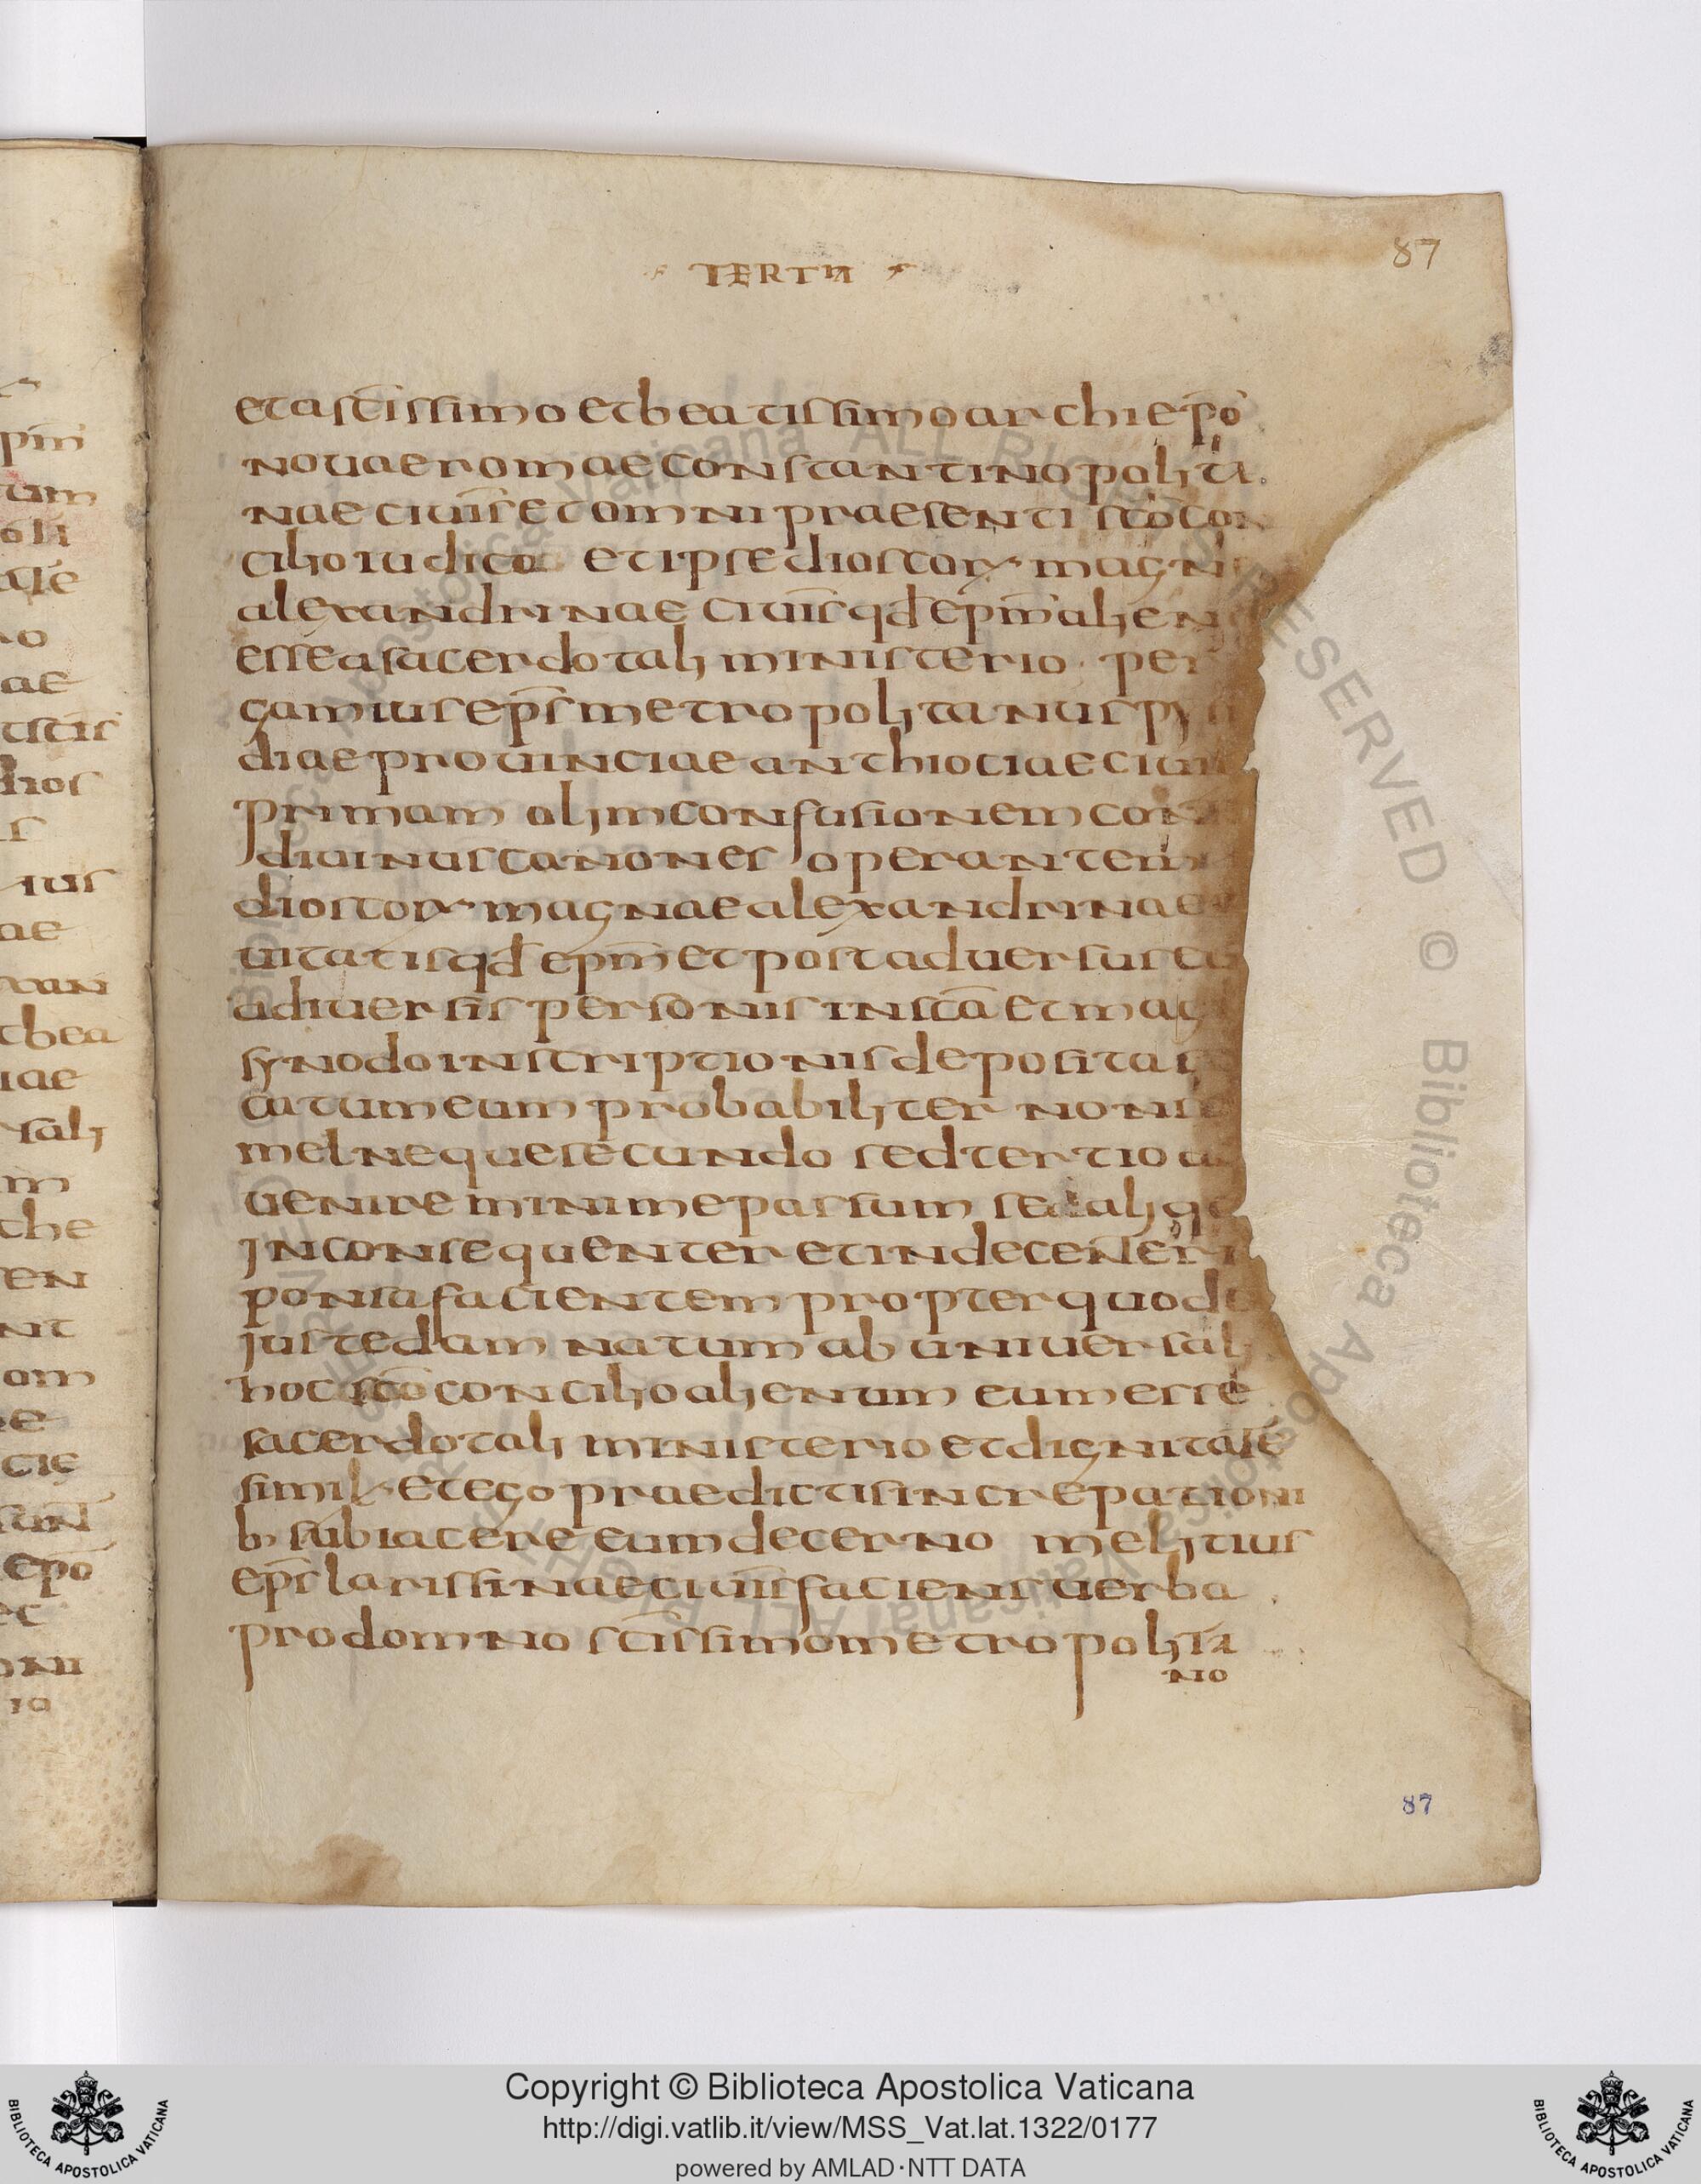 87
TERTIA
et a sc̄issimo et beatissimo archiep̄o
novae romae constantinopolita
nae civit̄s et omni praesenti sc̄o con
cilio iudico et ipse dioscorū magn
alexandrinae civit̄s qd̄ ep̄m alien
esse a sacerdotali ministerio per
gamius ep̄s metropolitanus pysi
diae provinciae anthiociae civit
primam olim confusionem con
divinus canones operantem
dioscorū magnae alexandrinae
vitatis qd̄ ep̄m et post adversus eu
a diversis personis in sc̄a et mag
synodo inscriptionis deposita
catum eum probabiliter non se
mel neque secundo sed tertio
venire minime passum sed aliqd
inconsequenter et indecenter
ponsa facientem propter quod
iuste damnatum ab universali
hoc sc̄o concilio alienum eum esse
sacerdotali ministerio et dignitate
simil et ego praedictis increpationi
b; subiacere eum decerno melitius
ep̄s larissinae civit̄s faciens verba
pro domno sc̄issimo metropolita
no
87
Copyright © Biblioteca Apostolica Vaticana
http://digi.vatlib.it/view/MSS_Vat.lat.1322/0177
powered by AMLAD·NTT DATA
BIBLIOTECA APOSTOLICA VATICANA
BIBLIOTECA APOSTOLICA VATICANA